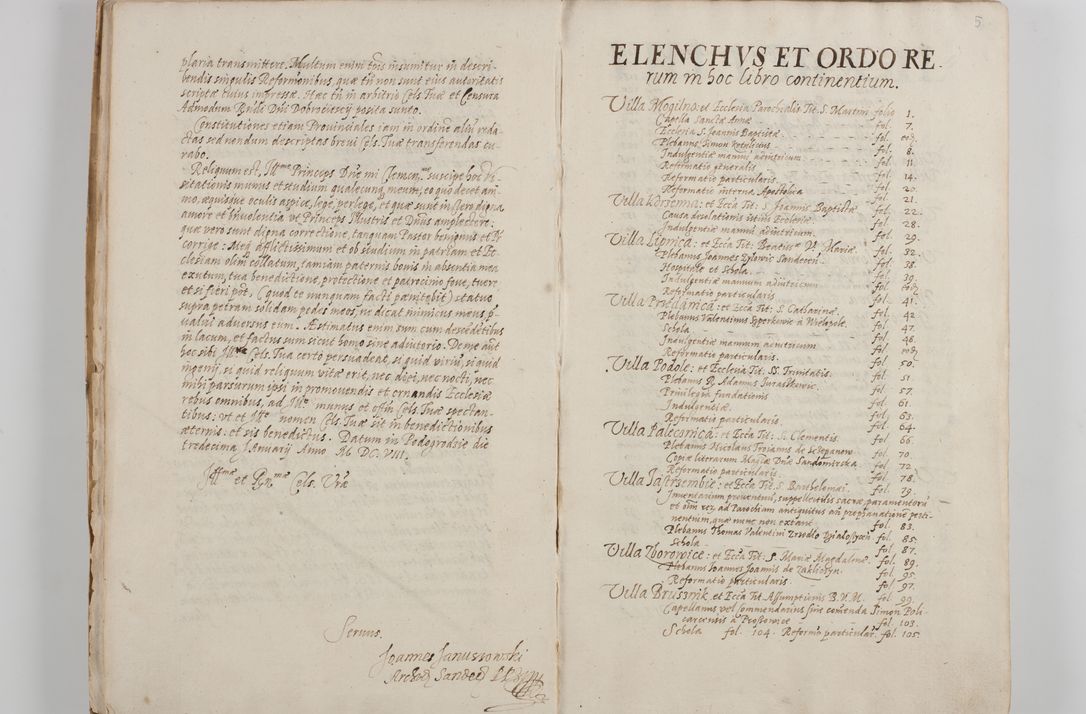 plaria transmittere. Multum enim t̃pis insumitur in descri-
bendis singulis Reformõnibus, quæ tñ non sunt eius autoritatis
scriptæ cuius impressæ. Hæc tñ in arbitrio Cels. Tuæ et Censura
Admodum Rñdi Dñi Dobrociescy posita sunto.
Constitutiones etiam Provinciales iam in ordinẽ aliũ reda-
ctas sed nondum descriptas brevi Cels. Tuæ transferendas cu-
rabo.
Reliquum est, Ill^me Princeps Dñe mi Clemen.^me suscipe hoc Vi-
sitationis munus et studium qualecunq, meum, eo quo decet ani-
mo, æquisque oculis aspice, lege, perlege, et quæ sunt in libro digna
amore et beñvolentia vt Princeps Illustris et Dñus amplectere:
quæ vero sunt digna correctione, tanquam Pastor benignus et Pr
corrige: Meq, afflictissimum et ob studium in patriam et Ec-
clesiam olim collatum, tamiam paternis bonis in absentia mea
exutum, tua benedictione, protectione et patrocinio fove, tuere
et si fieri põt, (quod te nunquam facti pænitebit) statue
supra petram solidam pedes meos, ne dicat inimicus meus p
valui adversus eum. Æstimatus enim sum cum descẽdẽtibus
in lacum, et factus sum sicut homo sine adiutorio. Deniq aut
hoc sibi Ill^ma Cels. Tua certo persuadeat, si quid viriũ, si quid
ingenij, si quid reliquum vitæ erit, nec diei, nec nocti, nec
mihi parsurum ipsi in promovendis et ornandis Ecclesiæ
rebus omnibus, ad Ill^e munus et offm Cels. Tuæ spectan-
tibus: vt et Ill^e nomen Cels. Tuæ sit in benedictionibus
æternis: et sis benedictus. Datum in Podegrodsie die
tredecima Januarij Anno M. DC. VIII.
Ill^mæ et R^mæ Cels. Vræ
Servus
Joannes Januszowski
Archid. Sandec
5
ELENCHVS ET ORDO RE-
rum in hoc libro continentium.
Villa Mogilno: et Ecclesia Parochialis Tit. S. Martini folio 1.
Capella Sanctæ Annæ fol. 7.
Ecclesia S. Joannis Baptistæ eod.
Plebanus Simon fol. 8.
Indulgentiæ manuũ adiutricum fol. 11.
Reformatio generalis fol. 14.
Reformatio particularis fol. 20.
Reformatio interna Apostolica fol. 21.
Villa Korzenna: et Ecca Tit: S. Joannis Baptistæ fol. 22.
Causa desolationis istius Ecclesiæ fol. 28.
Indulgentiæ manuum adiutricum. fol. 29.
Villa Lipnica: et Ecca Tit: Beatiss^æ V. Mariæ. fol. 32.
Plebanus Joannes Zylowic Sandecen. fol. 38.
Hospitale et Schola. fol. 39.
Indulgentiæ manuum adiutricum eod.
Reformatio particularis fol. 41.
Villa Przedanica: et Ecca Tit: S. Catharinæ. fol. 42
Plebanus Valentinus Syperkowic à Wielopole. fol. 47.
Schola. fol. 48.
Indulgentiæ manuum adiutricum eod.
Reformatio particularis. fol. 50.
Villa Podole: et Ecclesia Tit. SS. Trinitatis. fol. 51.
Plebanus R. Adamus Juraszkowic. fol. 57.
Privilegia fundationis fol. 61.
Indulgentiæ. fol. 63.
Reformatio particularis. fol. 64.
Villa Palecznica: et Ecca Tit: S. Clementis. fol. 66.
Plebanus Nicolaus Troianus de Szczepanow fol. 70.
Copiæ literarum Magcæ Dñæ Sandomirska fol. 72.
Reformatio particularis. fol. 78.
Villa Jastrzembie: et Ecca Tit. S. Barthelomæi. fol. 79.
Inventarium proventuũ, suppellectilis sacræ, paramentorũ
et oiũm rerũ ad Parochiam antiquitus añ prophanationẽ perti-
nentium, quæ nunc non extant fol. 83.
Plebanus Thomas Valentini Dzialoszycen. fol. 85.
Schola fol. 87.
Villa Zborowice: et Ecca Tit: S. Mariæ Magdalenæ. fol. 89.
Plebanus Joannes Joannis de Zakliczyn. fol. 95.
Reformatio particularis. fol. 97.
Villa Bruśnik et Ecca Tit Assumptionis B.V.M. fol. 99.
Capellanus vel Commendarius sive comenda Simon Poli-
carcensis à Proszowice fol. 103.
Schola fol. 104. Reformõ particular. fol. 105.